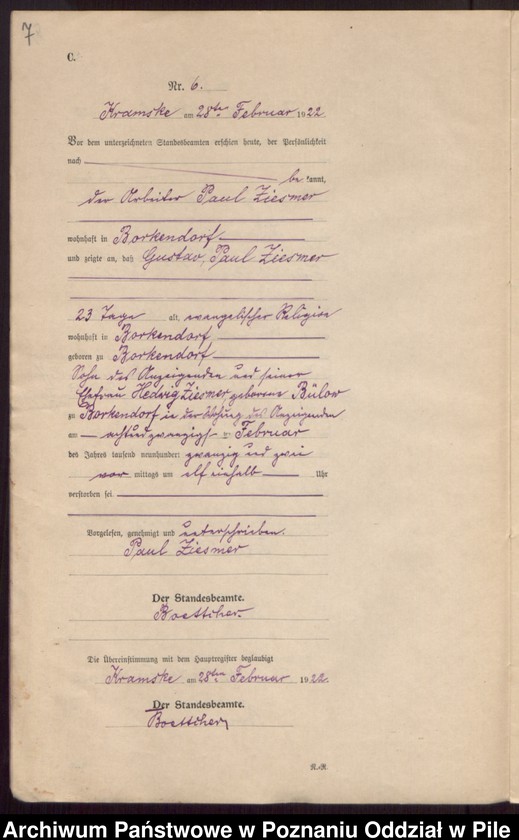 7
C.
Nr. 6.
Kramske am 28ten Februar 1922
Vor dem unterzeichneten Standesbeamten erschien heute, der Persönlichkeit
nach
be kannt,
der Arbeiter Paul Ziesmer
wohnhaft in Borkendorf
und zeigte an, daß Gustav, Paul Ziesmer
23 Tage alt, evangelischer Religion
wohnhaft in Borkendorf,
geboren zu Borkendorf
Sohn des Anzeigenden und seiner
Ehefrau Hedwig Ziesmer geborenen Bülow
zu Borkendorf in der Wohnung des Anzeigenden
am achtundzwanzigsten Februar
des Jahres tausend neunhundert zwanzig und zwei
vor mittags um elf einhalb Uhr
verstorben sei
Vorgelesen, genehmigt und unterschrieben.
Paul Ziesmer
Der Standesbeamte.
Boettcher.
Die Übereinstimmung mit dem Hauptregister beglaubigt
Kramske am 28ten Februar 1922.
Der Standesbeamte.
Boettcher
Archiwum Państwowe w Poznaniu Oddział w Pile